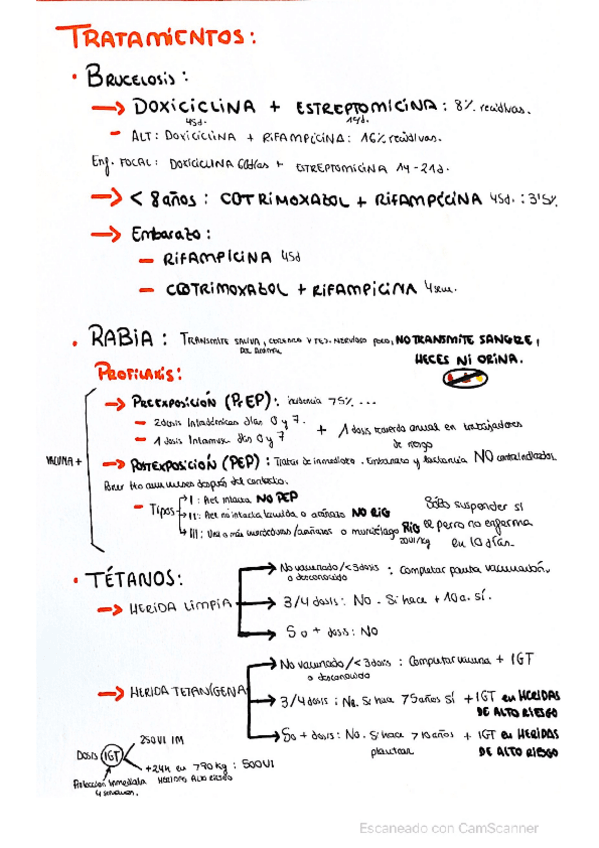 TRATAMIENTOS:
• BRUCELOSIS:
→ DOXICICLINA + ESTREPTOMICINA: 8% recidivas.
45d. 14d.
- ALT: DOXICICLINA + RIFAMPICINA: 16% recidivas.
Enf. FOCAL: DOXICICLINA 60días + ESTREPTOMICINA 14-21d.
→ < 8 años: COTRIMOXAZOL + RIFAMPICINA 45d.: 3'5%
→ Embarazo:
- RIFAMPICINA 45d
- COTRIMOXAZOL + RIFAMPICINA 4sem.
• RABIA: TRANSMITE SALIVA, CORNEA Y TEJ. NERVIOSO PERO, NO TRANSMITE SANGRE,
DEL ANIMAL
HECES NI ORINA.
PROFILAXIS:
→ PREEXPOSICIÓN (PrEP): incidencia 75% ...
- 2 dosis Intradérmicas días 0 y 7.
- 1 dosis Intramusc. días 0 y 7
+ 1 dosis recuerdo anual en trabajadores
de riesgo
VACUNA +
→ POSTEXPOSICIÓN (PEP): Tratar de inmediato. Embarazo y lactancia NO contraindicados.
Poner hta aun meses después del contacto.
- Tipos
I: Piel intacta NO PEP
II: Piel no intacta lamida o arañazo NO RIG
III: Una o más mordeduras/arañazos o murciélago RIG
20UI/kg
Sólo suspender si
el perro no enferma
en 10 días.
• TÉTANOS:
→ HERIDA LIMPIA
No vacunado/<3dosis : Completar pauta vacunación.
o desconocido
3/4 dosis: NO. Si hace + 10a. sí.
5 o + dosis: NO
→ HERIDA TETANÍGENA
No vacunado/<3dosis : Completar vacuna + IGT
o desconocido
3/4 dosis: No. Si hace 75años sí + IGT en HERIDAS
DE ALTO RIESGO
5 o + dosis: NO. Si hace >10años + IGT en HERIDAS
plantear DE ALTO RIESGO
DOSIS IGT
250UI IM
+24h en 790kg: 500UI
HERIDAS ALTO RIESGO
Protección Inmediata
4 semanas.
Escaneado con CamScanner